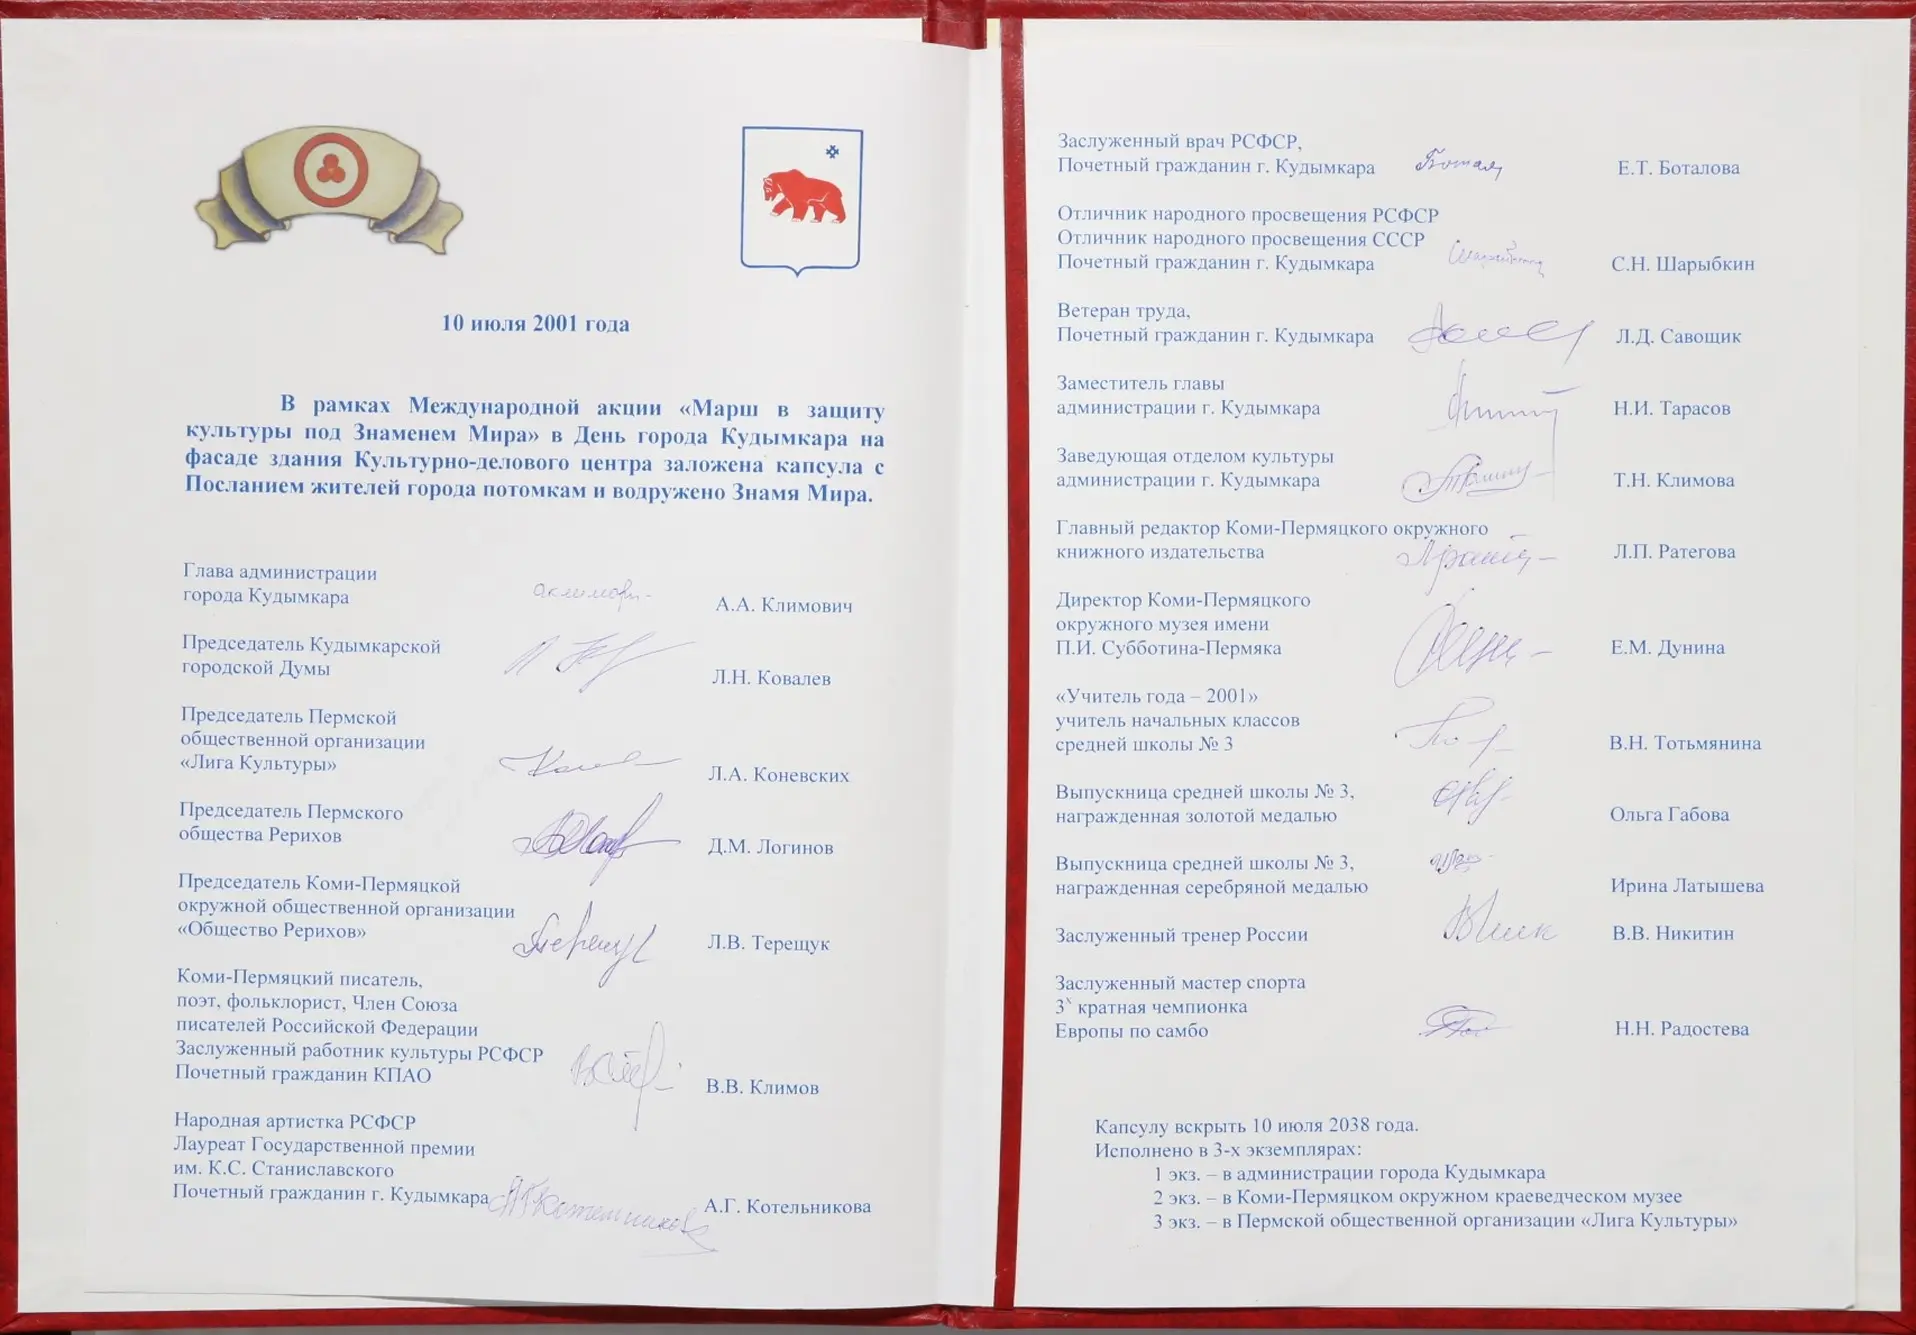 10 июля 2001 года
В рамках Международной акции «Марш в защиту
культуры под Знаменем Мира» в День города Кудымкара на
фасаде здания Культурно-делового центра заложена капсула с
Посланием жителей города потомкам и водружено Знамя Мира.
Глава администрации
города Кудымкара А.А. Климович
Председатель Кудымкарской
городской Думы Л.Н. Ковалев
Председатель Пермской
общественной организации
«Лига Культуры» Л.А. Коневских
Председатель Пермского
общества Рерихов Д.М. Логинов
Председатель Коми-Пермяцкой
окружной общественной организации
«Общество Рерихов» Л.В. Терещук
Коми-Пермяцкий писатель,
поэт, фольклорист, Член Союза
писателей Российской Федерации
Заслуженный работник культуры РСФСР
Почетный гражданин КПАО В.В. Климов
Народная артистка РСФСР
Лауреат Государственной премии
им. К.С. Станиславского
Почетный гражданин г. Кудымкара А.Г. Котельникова
Заслуженный врач РСФСР,
Почетный гражданин г. Кудымкара Е.Т. Боталова
Отличник народного просвещения РСФСР
Отличник народного просвещения СССР
Почетный гражданин г. Кудымкара С.Н. Шарыбкин
Ветеран труда,
Почетный гражданин г. Кудымкара Л.Д. Савощик
Заместитель главы
администрации г. Кудымкара Н.И. Тарасов
Заведующая отделом культуры
администрации г. Кудымкара Т.Н. Климова
Главный редактор Коми-Пермяцкого окружного
книжного издательства Л.П. Ратегова
Директор Коми-Пермяцкого
окружного музея имени
П.И. Субботина-Пермяка Е.М. Дунина
«Учитель года – 2001»
учитель начальных классов
средней школы № 3 В.Н. Тотьмянина
Выпускница средней школы № 3,
награжденная золотой медалью Ольга Габова
Выпускница средней школы № 3,
награжденная серебряной медалью Ирина Латышева
Заслуженный тренер России В.В. Никитин
Заслуженный мастер спорта
3х кратная чемпионка
Европы по самбо Н.Н. Радостева
Капсулу вскрыть 10 июля 2038 года.
Исполнено в 3-х экземплярах:
1 экз. – в администрации города Кудымкара
2 экз. – в Коми-Пермяцком окружном краеведческом музее
3 экз. – в Пермской общественной организации «Лига Культуры»